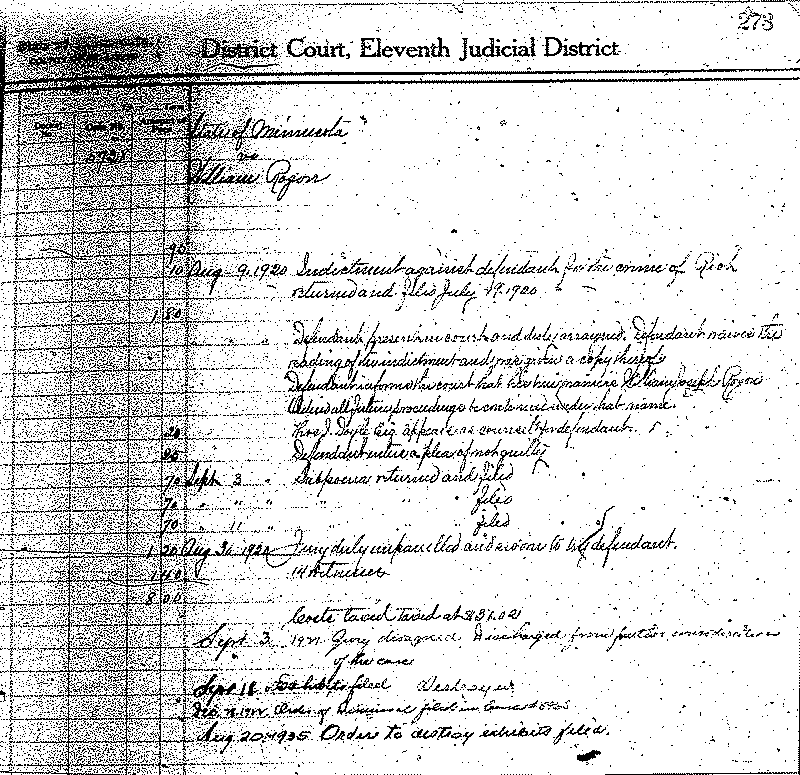 273
District Court, Eleventh Judicial District
State of Minnesota
vs
William Rozon
90
10 Aug. 9, 1920 Indictment against defendant for the crime of Riot
returned and filed July 1920
1 80
" " " Defendant present in court and duly arraigned. Defendant waives the
reading of the indictment and was given a copy thereof
Defendant informs the court that his true name is William Joseph Rozon
Ordered all future proceedings to continue under that name.
20 " " Doyle Esq. appears as counsel for defendant.
20 " " Defendant enters a plea of not guilty
70 Sept. 3 " Subpoena returned and filed
70 " " " " " " filed
70 " 11 " " " " filed
1 20 Aug 31 1920 Jury duly impanelled and sworn to try defendant.
1 40 14 witnesses
8 00
Costs taxed taxed at $31.02
Sept 3 Jury disagreed. Discharged from further consideration
of the case
Sept 18 Exhibits filed Destroyed
Order of Dismissal filed in
Aug 20-1935 Order to destroy exhibits filed.